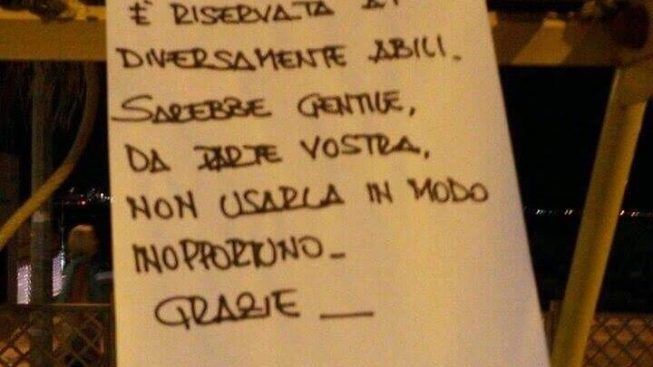 È RISERVATA AI
DIVERSAMENTE ABILI.
SAREBBE GENTILE,
DA PARTE VOSTRA,
NON USARLA IN MODO
INOPPORTUNO_
GRAZIE __